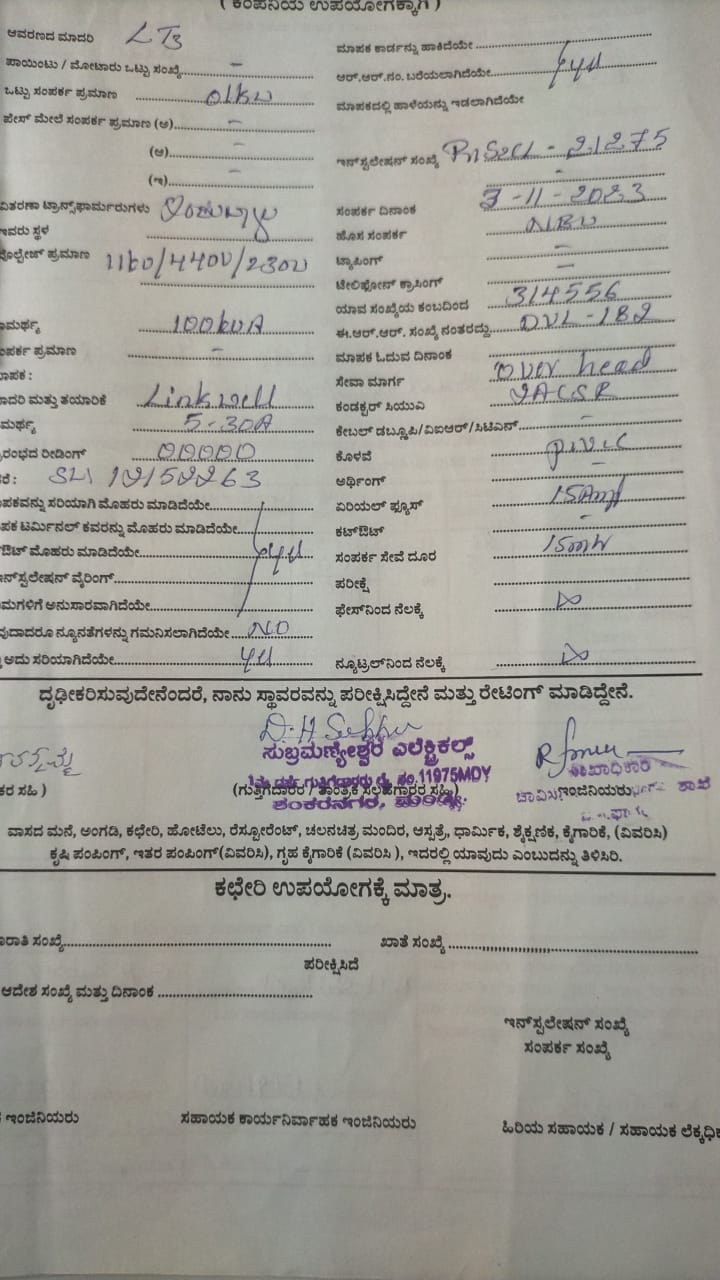 ( ಕಂಪನಿಯ ಉಪಯೋಗಕ್ಕಾಗಿ )
ಆವರಣದ ಮಾದರಿ LT3
ಪಾಯಿಂಟು / ಮೋಟಾರು ಒಟ್ಟು ಸಂಖ್ಯೆ -
ಒಟ್ಟು ಸಂಪರ್ಕ ಪ್ರಮಾಣ 01kw
ಫೇಸ್ ಮೇಲೆ ಸಂಪರ್ಕ ಪ್ರಮಾಣ (ಅ) -
(ಆ) -
(ಇ) -
ವಿತರಣಾ ಟ್ರಾನ್ಸ್‌ಫಾರ್ಮರುಗಳು
ಇವರು ಸ್ಥಳ
ವೋಲ್ಟೇಜ್ ಪ್ರಮಾಣ 1160/440V/230V
ಾಮರ್ಥ್ಯ 100kVA
ಂಪರ್ಕ ಪ್ರಮಾಣ -
ಾಪಕ :
ಾದರಿ ಮತ್ತು ತಯಾರಿಕೆ Linkwell
ಮರ್ಥ್ಯ 5-30A
ರಂಭದ ರೀಡಿಂಗ್ 00000
ರೆ :
ಪಕವನ್ನು ಸರಿಯಾಗಿ ಮೊಹರು ಮಾಡಿದೆಯೇ
ಪಕ ಟರ್ಮಿನಲ್ ಕವರನ್ನು ಮೊಹರು ಮಾಡಿದೆಯೇ
ಔಟ್ ಮೊಹರು ಮಾಡಿದೆಯೇ yes
ಇನ್‌ಸ್ಟಲೇಷನ್ ವೈರಿಂಗ್
ಮಗಳಿಗೆ ಅನುಸಾರವಾಗಿದೆಯೇ
ವುದಾದರೂ ನ್ಯೂನತೆಗಳನ್ನು ಗಮನಿಸಲಾಗಿದೆಯೇ NO
ಅದು ಸರಿಯಾಗಿದೆಯೇ yes
ಮಾಪಕ ಕಾರ್ಡನ್ನು ಹಾಕಿದೆಯೇ
ಆರ್.ಆರ್.ನಂ. ಬರೆಯಲಾಗಿದೆಯೇ yes
ಮಾಪಕದಲ್ಲಿ ಹಾಳೆಯನ್ನು ಇಡಲಾಗಿದೆಯೇ
ಇನ್‌ಸ್ಟಲೇಷನ್ ಸಂಖ್ಯೆ - 21275
ಸಂಪರ್ಕ ದಿನಾಂಕ 7-11-2023
ಹೊಸ ಸಂಪರ್ಕ
ಟ್ಯಾಪಿಂಗ್ -
ಟೆಲಿಫೋನ್ ಕ್ರಾಸಿಂಗ್ -
ಯಾವ ಸಂಖ್ಯೆಯ ಕಂಬದಿಂದ 314556
ಈ.ಆರ್.ಆರ್. ಸಂಖ್ಯೆ ನಂತರದ್ದು DVL-182
ಮಾಪಕ ಓದುವ ದಿನಾಂಕ
ಸೇವಾ ಮಾರ್ಗ over head
ಕಂಡಕ್ಟರ್ ಸಿಯುವಿ
ಕೇಬಲ್ ಡಬ್ಲೂಪಿ/ವಿಐಆರ್/ಸಿಟಿಎಸ್ -
ಕೊಳವೆ p.v.c
ಅರ್ಥಿಂಗ್ -
ಏರಿಯಲ್ ಫ್ಯೂಸ್ 15Amp
ಕಟ್‌ಔಟ್ -
ಸಂಪರ್ಕ ಸೇವೆ ದೂರ
ಪರೀಕ್ಷೆ
ಫೇಸ್‌ನಿಂದ ನೆಲಕ್ಕೆ
ನ್ಯೂಟ್ರಲ್‌ನಿಂದ ನೆಲಕ್ಕೆ
ದೃಢೀಕರಿಸುವುದೇನೆಂದರೆ, ನಾನು ಸ್ಥಾವರವನ್ನು ಪರೀಕ್ಷಿಸಿದ್ದೇನೆ ಮತ್ತು ರೇಟಿಂಗ್ ಮಾಡಿದ್ದೇನೆ.
ಸುಬ್ರಮಣ್ಯೇಶ್ವರ ಎಲೆಕ್ಟ್ರಿಕಲ್ಸ್
ನಂ.11975MDY
ಶಂಕರನಗರ, ಮಂಡ್ಯ.
ಶಾಖಾಧಿಕಾರಿ
ಕರ ಸಹಿ ) (ಗುತ್ತಿಗೆದಾರರ / ತಾಂತ್ರಿಕ ಸಲಹೆಗಾರರ ಸಹಿ) ಇಂಜಿನಿಯರು
ವಾಸದ ಮನೆ, ಅಂಗಡಿ, ಕಛೇರಿ, ಹೋಟೆಲು, ರೆಸ್ಟೋರೆಂಟ್, ಚಲನಚಿತ್ರ ಮಂದಿರ, ಆಸ್ಪತ್ರೆ, ಧಾರ್ಮಿಕ, ಶೈಕ್ಷಣಿಕ, ಕೈಗಾರಿಕೆ, (ವಿವರಿಸಿ)
ಕೃಷಿ ಪಂಪಿಂಗ್, ಇತರ ಪಂಪಿಂಗ್(ವಿವರಿಸಿ), ಗೃಹ ಕೈಗಾರಿಕೆ (ವಿವರಿಸಿ ), ಇದರಲ್ಲಿ ಯಾವುದು ಎಂಬುದನ್ನು ತಿಳಿಸಿರಿ.
ಕಛೇರಿ ಉಪಯೋಗಕ್ಕೆ ಮಾತ್ರ.
ಾರಾತಿ ಸಂಖ್ಯೆ ಖಾತೆ ಸಂಖ್ಯೆ
ಪರೀಕ್ಷಿಸಿದೆ
ಆದೇಶ ಸಂಖ್ಯೆ ಮತ್ತು ದಿನಾಂಕ
ಇನ್‌ಸ್ಟಲೇಷನ್ ಸಂಖ್ಯೆ
ಸಂಪರ್ಕ ಸಂಖ್ಯೆ
ಇಂಜಿನಿಯರು ಸಹಾಯಕ ಕಾರ್ಯನಿರ್ವಾಹಕ ಇಂಜಿನಿಯರು ಹಿರಿಯ ಸಹಾಯಕ / ಸಹಾಯಕ ಲೆಕ್ಕಧಿಕ